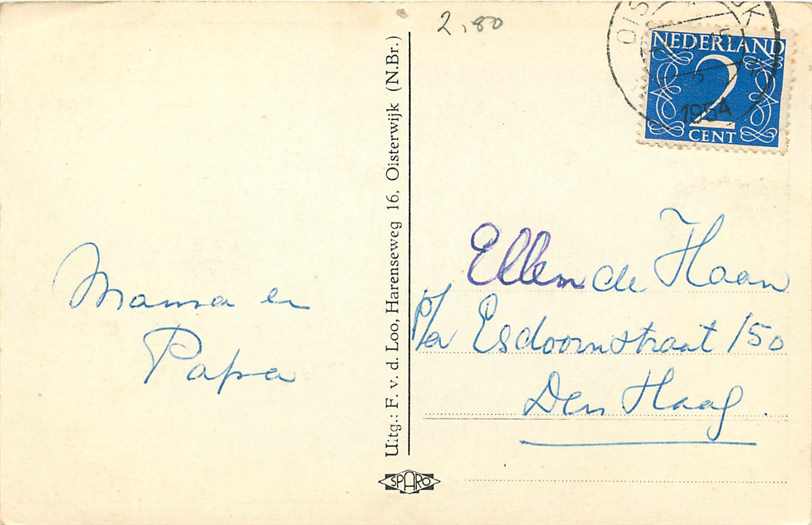 2,80
NEDERLAND
2
CENT
1954
Uitg.: F. v. d. Loo, Harenseweg 16, Oisterwijk (N.Br.)
Mama en
Papa
Ellen de Haan
p/a Esdoornstraat 150
Den Haag.
SPARO